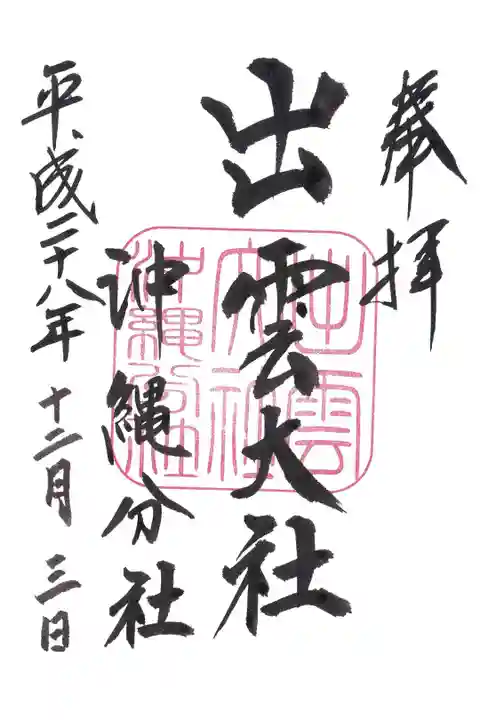 奉拝
出雲大社
沖縄分社
平成二十八年 十二月 三日
出雲
大社
沖縄分社